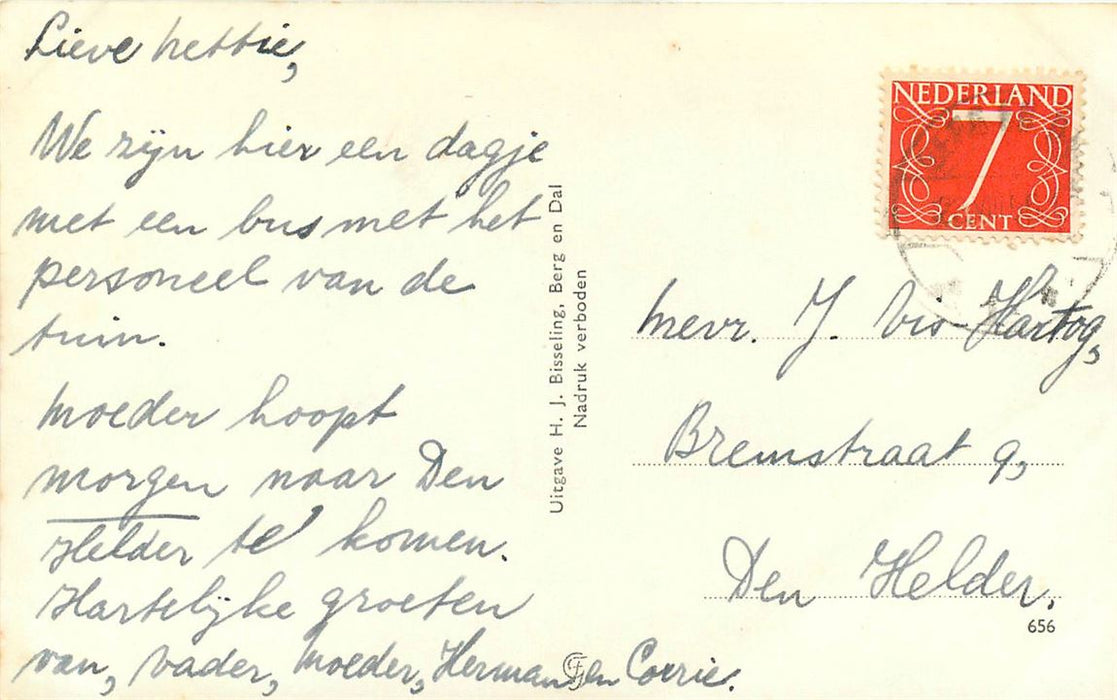 Lieve Hettie,
We zijn hier een dagje
met een bus met het
personeel van de
tuin.
Moeder hoopt
morgen naar Den
Helder te komen.
Hartelijke groeten
van, vader, Moeder, Herman en Corrie.
Uitgave H. J. Bisseling, Berg en Dal
Nadruk verboden
NEDERLAND
7
CENT
Mevr. J. Vis-Hartog,
Bremstraat 9,
Den Helder.
656